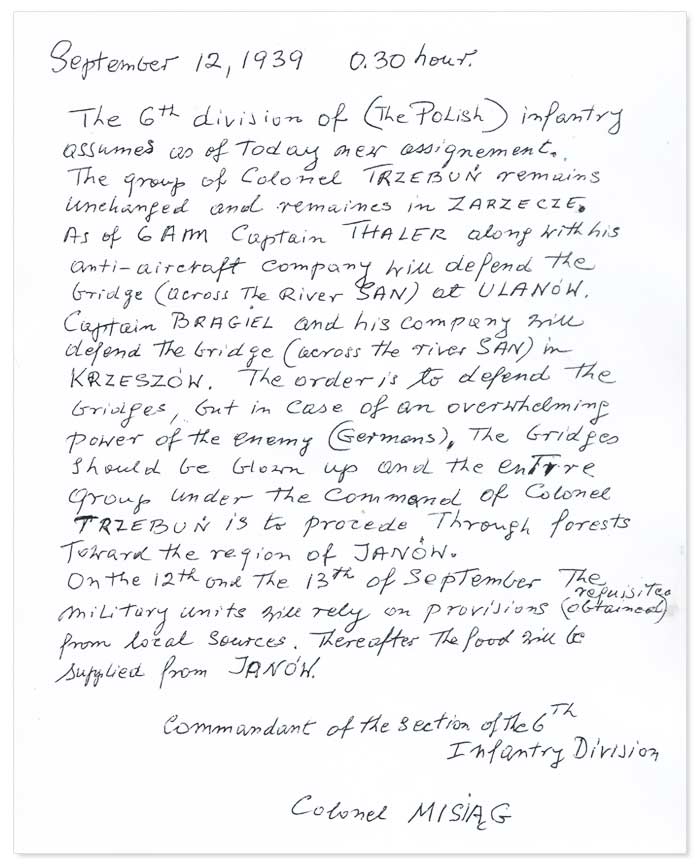 September 12, 1939 0.30 hour.
The 6th division of (The Polish) infantry
assumes as of Today new assignement.
The group of Colonel TRZEBUŃ remains
unchanged and remaines in ZARZECZE.
As of 6 AM Captain THALER along with his
anti-aircraft company will defend the
bridge (across The River SAN) at ULANÓW.
Captain BRAGIEL and his company will
defend The bridge (across the river SAN) in
KRZESZÓW. The order is to defend the
bridges, but in case of an overwhelming
power of the enemy (Germans), The bridges
should be blown up and the entire
group under the Command of Colonel
TRZEBUŃ is to procede Through forests
Toward the region of JANÓW.
On the 12th and The 13th of September The
military units will rely on provisions (obtained) requisited
from local sources. Thereafter The food will be
supplied from JANÓW.
Commandant of the section of the 6Th
Infantry Division
Colonel MISIĄG